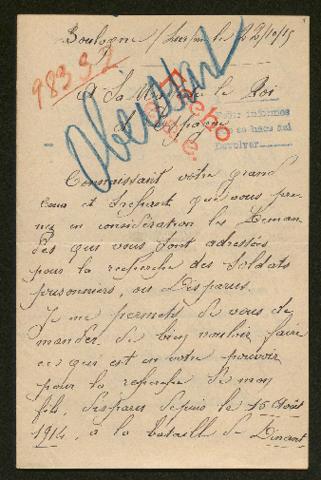 Boulogne s/mer le 22/10/15
98332
A Sa Majesté le Roi
d'Espagne
Hecho
Pedir informes
que se hace aui
Devolver
Connaissant votre grand
cœur et sachant que vous pre-
nez en considération les deman-
des qui vous sont adressées
pour la recherche des soldats
prisonniers, ou disparus.
Je me permets de vous de-
mander de bien vouloir faire
ce qui est en votre pouvoir
pour la recherche de mon
fils, disparu depuis le 15 Août
1914, à la bataille de Dinant